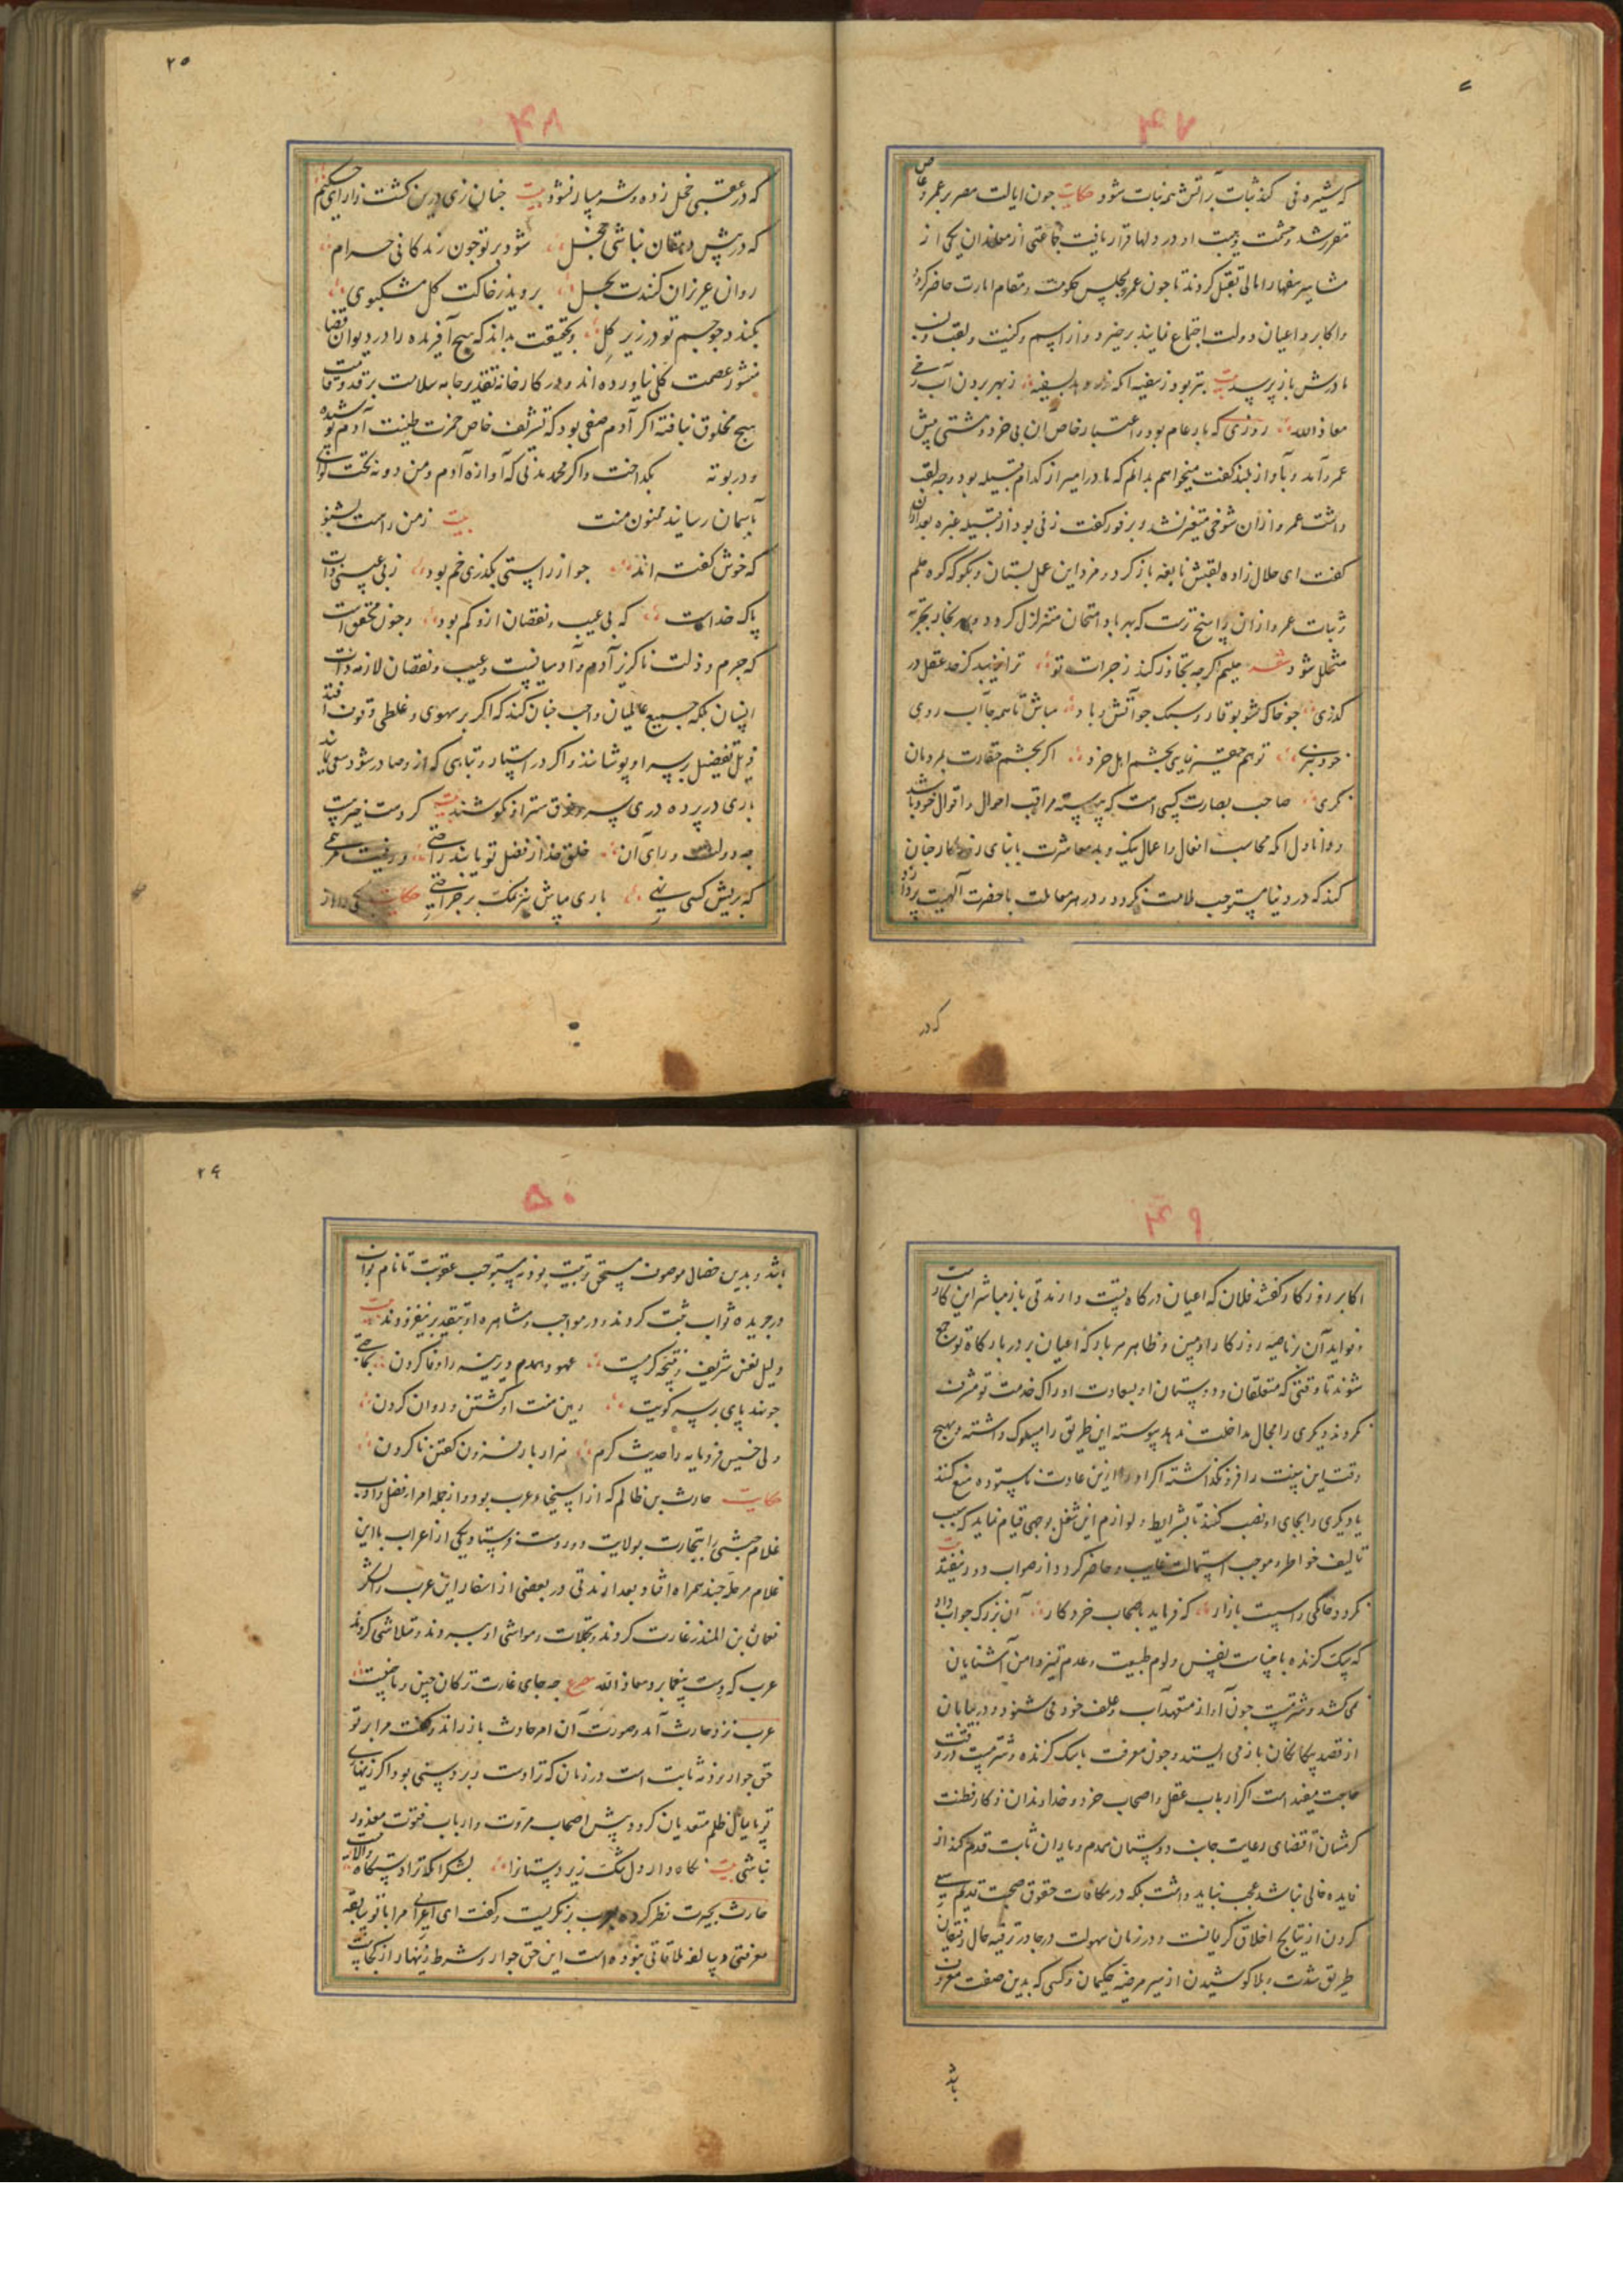 ۴۷
که شیره نی کند ثبات بر آتش همه نبات شود حکایت چون ایالت مصر بر عمرو عاص
مقرر شد و حشمت و هیبت او در دلها قرار یافت جماعتی از معاندان یکی از
مشاهیر سفها را مالی تقبل کردند تا چون عمرو بمجلس حکومت و مقام امارت حاضر کردد
و اکابر و اعیان دولت اجتماع نمایند برخیزد و از اسم و کنیت و لقب و نسب
مادرش باز پرسد بیت بتر بود ز سفیه آنکه بسفیه ز بهر بردن آب رخی
معاذ الله روزی که بار عام بود و اعتبار خاص آن بی خرد و مشتی پیش
عمرو آمد و بآواز بلند کفت میخواهم بدانم که مادر امیر از کدام قبیله بود و چه لقب
داشت عمرو از آن شوخی متغیر نشد و بر فور کفت زنی بود از قبیله عنزه بعد از آن
کفت ای حلال زاده لقبش نابغه باز کرد و مزد این عمل بستان و بکو که کوه حلم
و ثبات عمرو از آن راسخ ترست که بهر باد امتحان متزلزل کردد و بهر بخار تجربه
متخلل شود شعر حلیم اکرچه تجاوز کند ز جرات تو ترا نزیبد کز حد عقل در
کذری چو خاک شو بوقار و سبک چو آتش و باد مباش تا همه جا آب روی
خود ببری تو هم حقیر نمایی بچشم اهل خرد اکر بچشم حقارت بمردمان
نکری صاحب بصارت کسی است که پیوسته مراقب احوال و اقوال خود باشد
و دانا دل آنکه محاسب افعال و اعمال نیک و بد معاشرت با بنای روزکار چنان
کند که در دنیا مستوجب ملامت نکردد و در هر معاملت با حضرت الهیت پردازد
که در
۲۵
۴۸
که در عقبی خجل زده و شرمسار نشود بیت چنان زی درین کشت زار ای حکیم
که در پیش دهقان نباشی خجل شود بر تو چون زندکانی حرام
روان عزیزان کنندت بحل بروید ز خاکت کل مشکبوی
بکندد چو جسم تو در زیر کل و بحقیقت بداند که هیچ آفریده را در دیوان قضا
منشور عصمت کلی نیاورده اند و در کارخانه تقدیر جامه سلامت بر قد و قامت
هیچ مخلوق نبافته اکر آدم صفی بود که تشریف خاص خمرت طینت آدم پوشیده
و در بوته بکداخت و اکر محمد مدنی که آوازه آدم و من دونه تحت لوائی
بآسمان رسانید ممنون منت بیت ز من راست بشنو
که خوش کفته اند چو از راستی بکذری خم بود ز بی عیبی ذات
پاک خداست که بی عیب و نقصان ازو کم بود و چون محقق است
که جرم و ذلت ناکزیر آدم و آدمیانست و عیب و نقصان لازمه ذات
انسان بلکه جمیع عالمیان واجب چنان کند که اکر بر سهوی و غلطی وقوف افتد
ذیل تفضیل بر سر او پوشانند و اکر در استتار و تباهی که از و صادر شود سعی نمایند
باری در پرده دری پسر و خرق ستر او نکوشند بیت کر دست نمیرسد
چه دولت ورای آن خلق خدا ز فضل تو یابند راحتی ور نیست مرهمی
که بریش کسی نهی باری مپاش نیز نمک بر جراحتی حکایت یکی را از
۴۹
اکابر روزکار کفتند فلان که اعیان درکاه تست و از مدتی باز مباشر این کارست
و فواید آن بر ناصیه روزکار او مبین و ظاهر هر بار که اعیان بر در بارکاه تو جمع
شوند تا وقتی که متعلقان و دوستان او بسعادت ادراک خدمت تو مشرف
نکردند دیکری را مجال مداخلت ندهد پیوسته این طریق را مسلوک داشته و بهیچ
وقت این سنت را فرو نکذاشته اکر او را ازین عادت ناستوده منع کنند
یا دیکری را بجای او نصب کنند تا بشرایط و لوازم این شغل بوجهی قیام نماید که سبب
تالیف خواطر و موجب استمالت غایب و حاضر کردد از صواب دور نیفتد بیت
نکردد خانکی را سست بازار که فرماید باصحاب خرد کار آن بزرک جواب داد
که سک کزنده با خباثت نفس و لوم طبیعت و عدم تمیز دامن آشنایان
نمی کشد و شتر مست چون آواز متعهد آب و علف خود می شنود در بیابان
از قصد بیکانکان باز می ایستد و چون معرفت با سک کزنده و شتر مست در وقت
حاجت مفید است اکر ارباب عقل و اصحاب خرد و خداوندان ذکا و فطنت
کرشان اقتضای رعایت جانب دوستان همدم و یاران ثابت قدم کند از
فایده خالی نباشد عجب نباید داشت بلکه در مکافات حقوق صحبت قدیم سعی
کردن از نتایج اخلاق کریمانست و در زمان سهولت در جاده ترفیه حال رفیقان
طریق شدت و بلا کوشیدن از سیر مرضیه حکیمان و کسی که بدین صفت معروف
باشد
۲۶
۵۰
باشد و بدین خصال موصوف مستحق تربیت بود نه مستوجب عقوبت تا نام نواب
در جریده ثواب ثبت کردند و در مواجب و مشاهره او بتقدیر بیفزودند بیت
دلیل نفس شریف و نتیجه کرمست عهود همدم دیرینه را وفا کردن بجایی
جو نهند پای بر سر کویت رهین منت او کشتن و روان کردن
ولی خسیس فرومایه را حدیث کرم هزار بار فزون کفتن ناکردن
حکایت حارث بن ظالم که از اسخیاء عرب بود و از جمله امراء فضل و ادب
غلام حبشی را بتجارت بولایت دوردست فرستاد و یکی از اعراب با این
غلام مرحله چند همراه افتاد بعد از مدتی در بعضی از اسفار این عرب را لشکر
نعمان بن المنذر غارت کردند و بتجملات و مواشی او ببردند و متلاشی کردند
عرب که دست پیغما برد معاذ الله مصرع چه جای غارت ترکان چین و یا ختنیست
عرب نزد حارث آمد و صورت آن امر حادث باز راند و کفت مرا بر تو
حق جوار و ذمه ثابت است در زمان که ترا دست و بر دوستی بود اکر زینهاری
تو پایمال ظلم متعدیان کردد پیش اصحاب مروت و ارباب فتوت معذور
نباشی بیت نکاه دار دل تنک زیر دستانرا بشکر آنکه ترا دستکاه والاست
حارث بحیرت نظر کرده در عرب بنکریست و کفت ای اعرابی مرا با تو سابقه
معرفتی و سالفه ملاقاتی نبوده است این حق جوار و شرط زنهار از کجاست